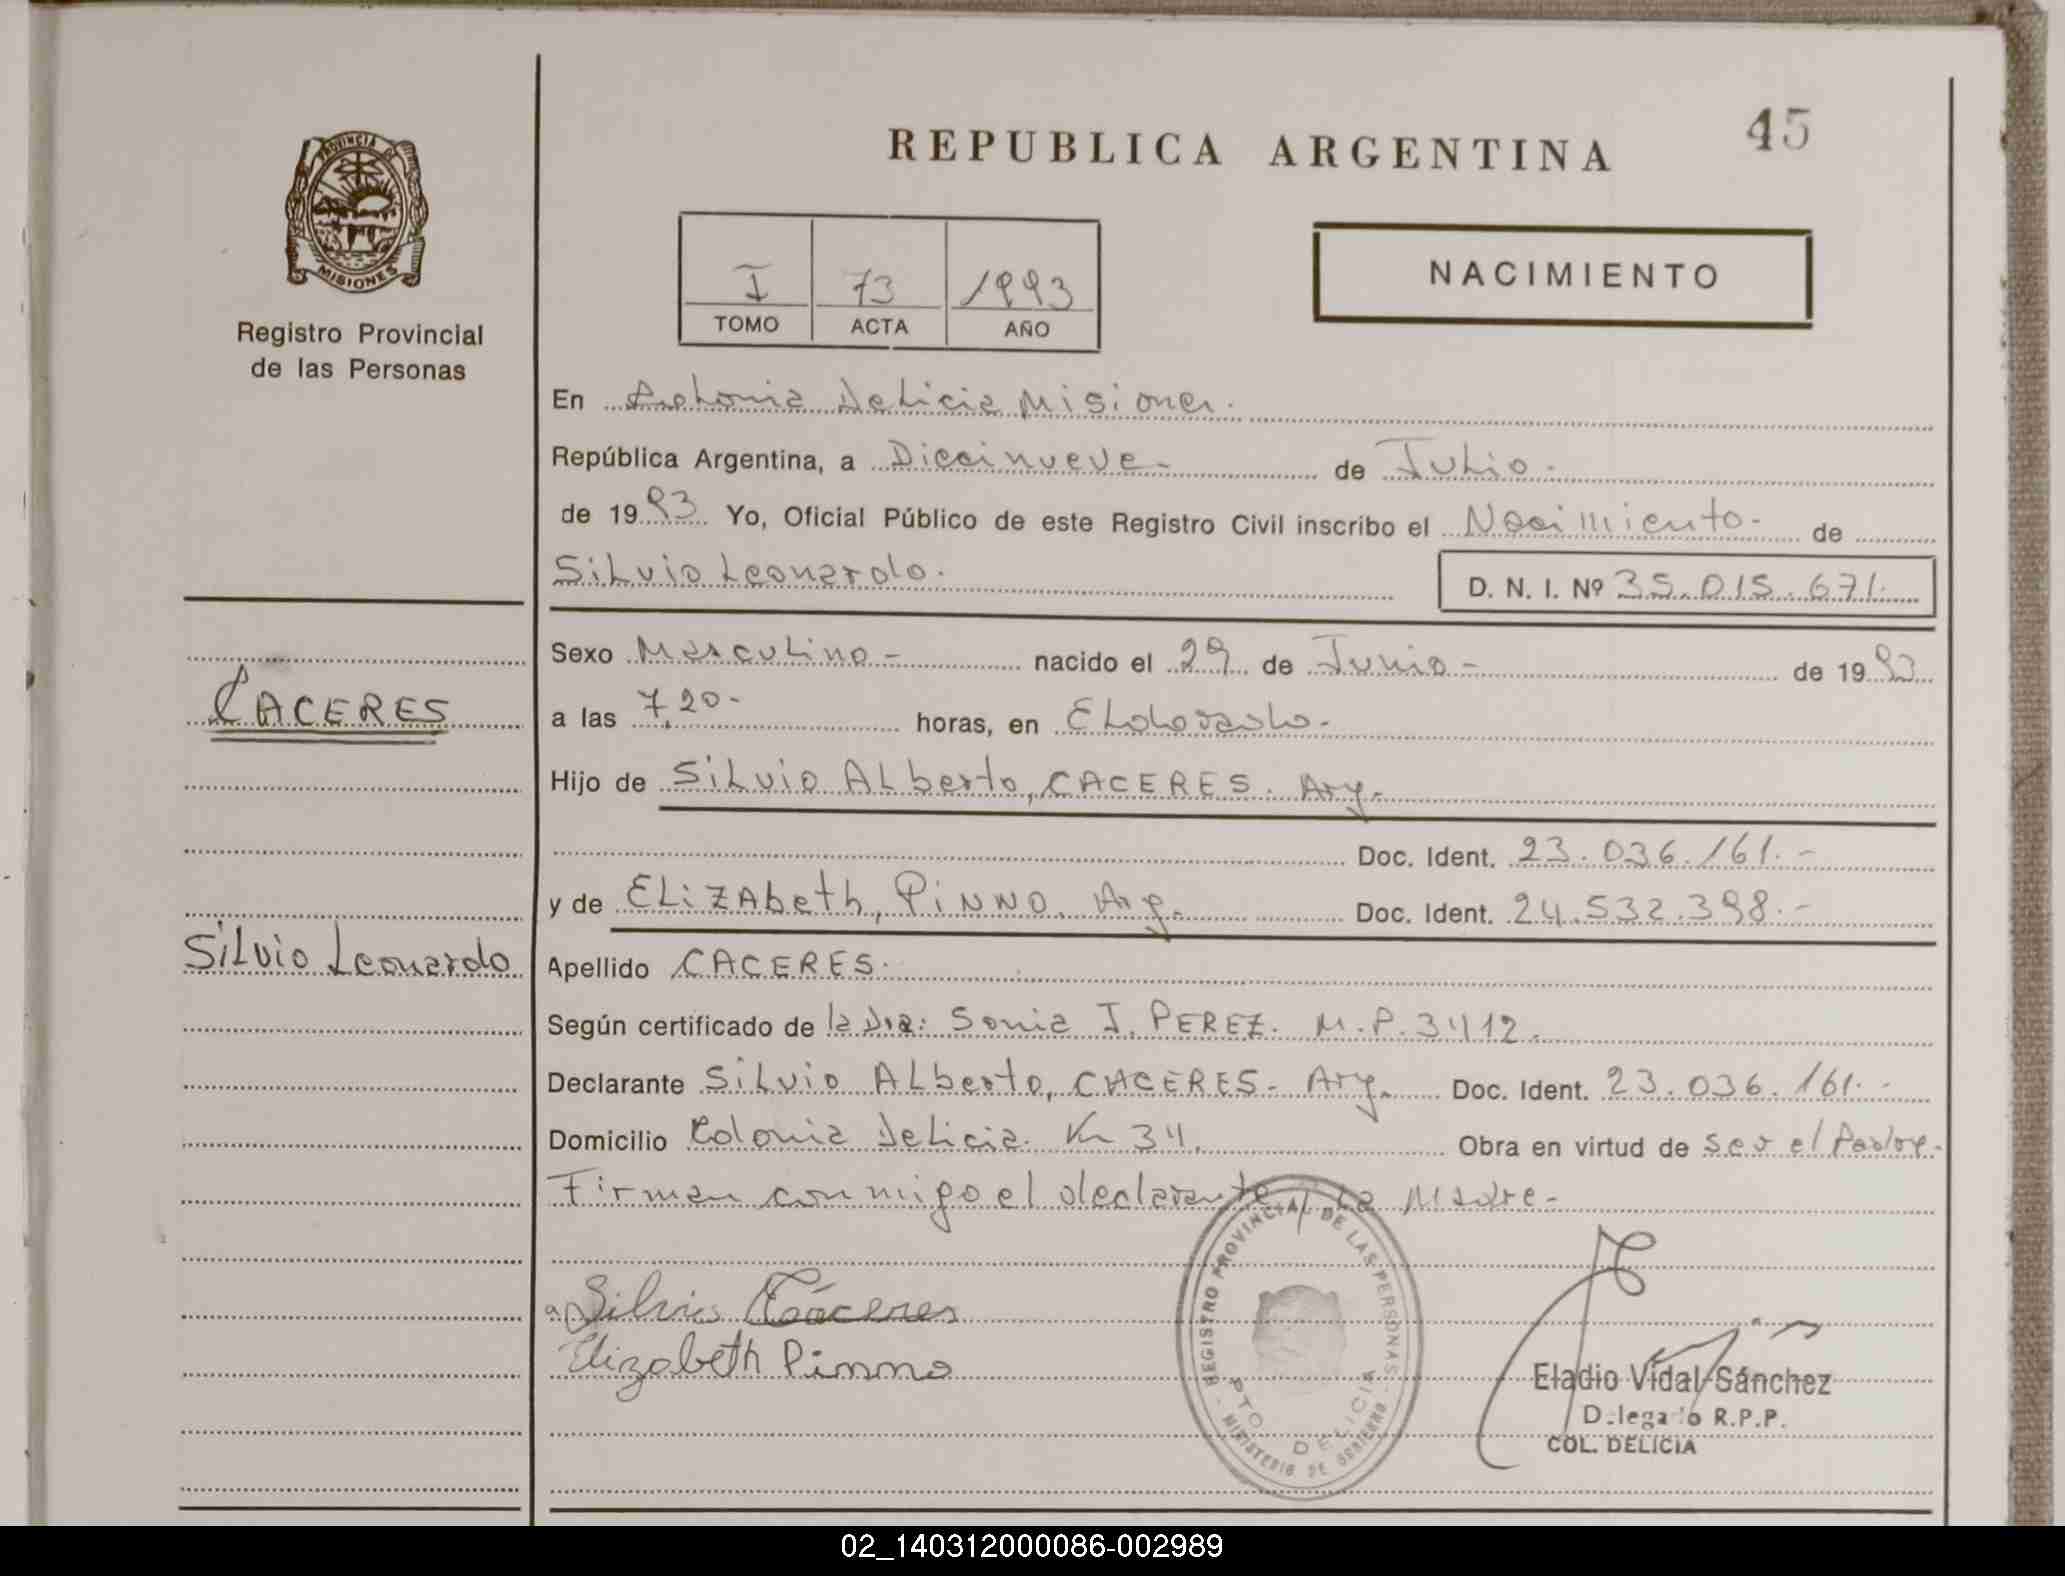 REPUBLICA ARGENTINA
45
PROVINCIA DE
MISIONES
Registro Provincial
de las Personas
I 73 1993
TOMO ACTA AÑO
NACIMIENTO
En Colonia Delicia Misiones.
República Argentina, a Diecinueve- de Julio.
de 1993 Yo, Oficial Público de este Registro Civil inscribo el Nacimiento- de
Silvio Leonardo.
D. N. I. Nº 35.015.671.
Sexo Masculino- nacido el 29 de Junio- de 1993
CACERES
a las 7,20- horas, en Eldorado.
Hijo de Silvio Alberto, CACERES. Arg.
Doc. Ident. 23.036.161.-
y de Elizabeth, PINNO. Arg. Doc. Ident. 24.532.398.-
Silvio Leonardo
Apellido CACERES.
Según certificado de la Dra: Sonia I. PEREZ. M.P. 3412.
Declarante Silvio Alberto, CACERES- Arg. Doc. Ident. 23.036.161.-
Domicilio Colonia Delicia. Km 34. Obra en virtud de ser el Padre.
Firman conmigo el declarante y la Madre-
Silvio Cáceres
Elizabeth Pinno
REGISTRO PROVINCIAL DE LAS PERSONAS
PTO. DELICIA
MINISTERIO DE GOBIERNO
Eladio Vidal Sánchez
Delegado R.P.P.
COL. DELICIA
02_140312000086-002989